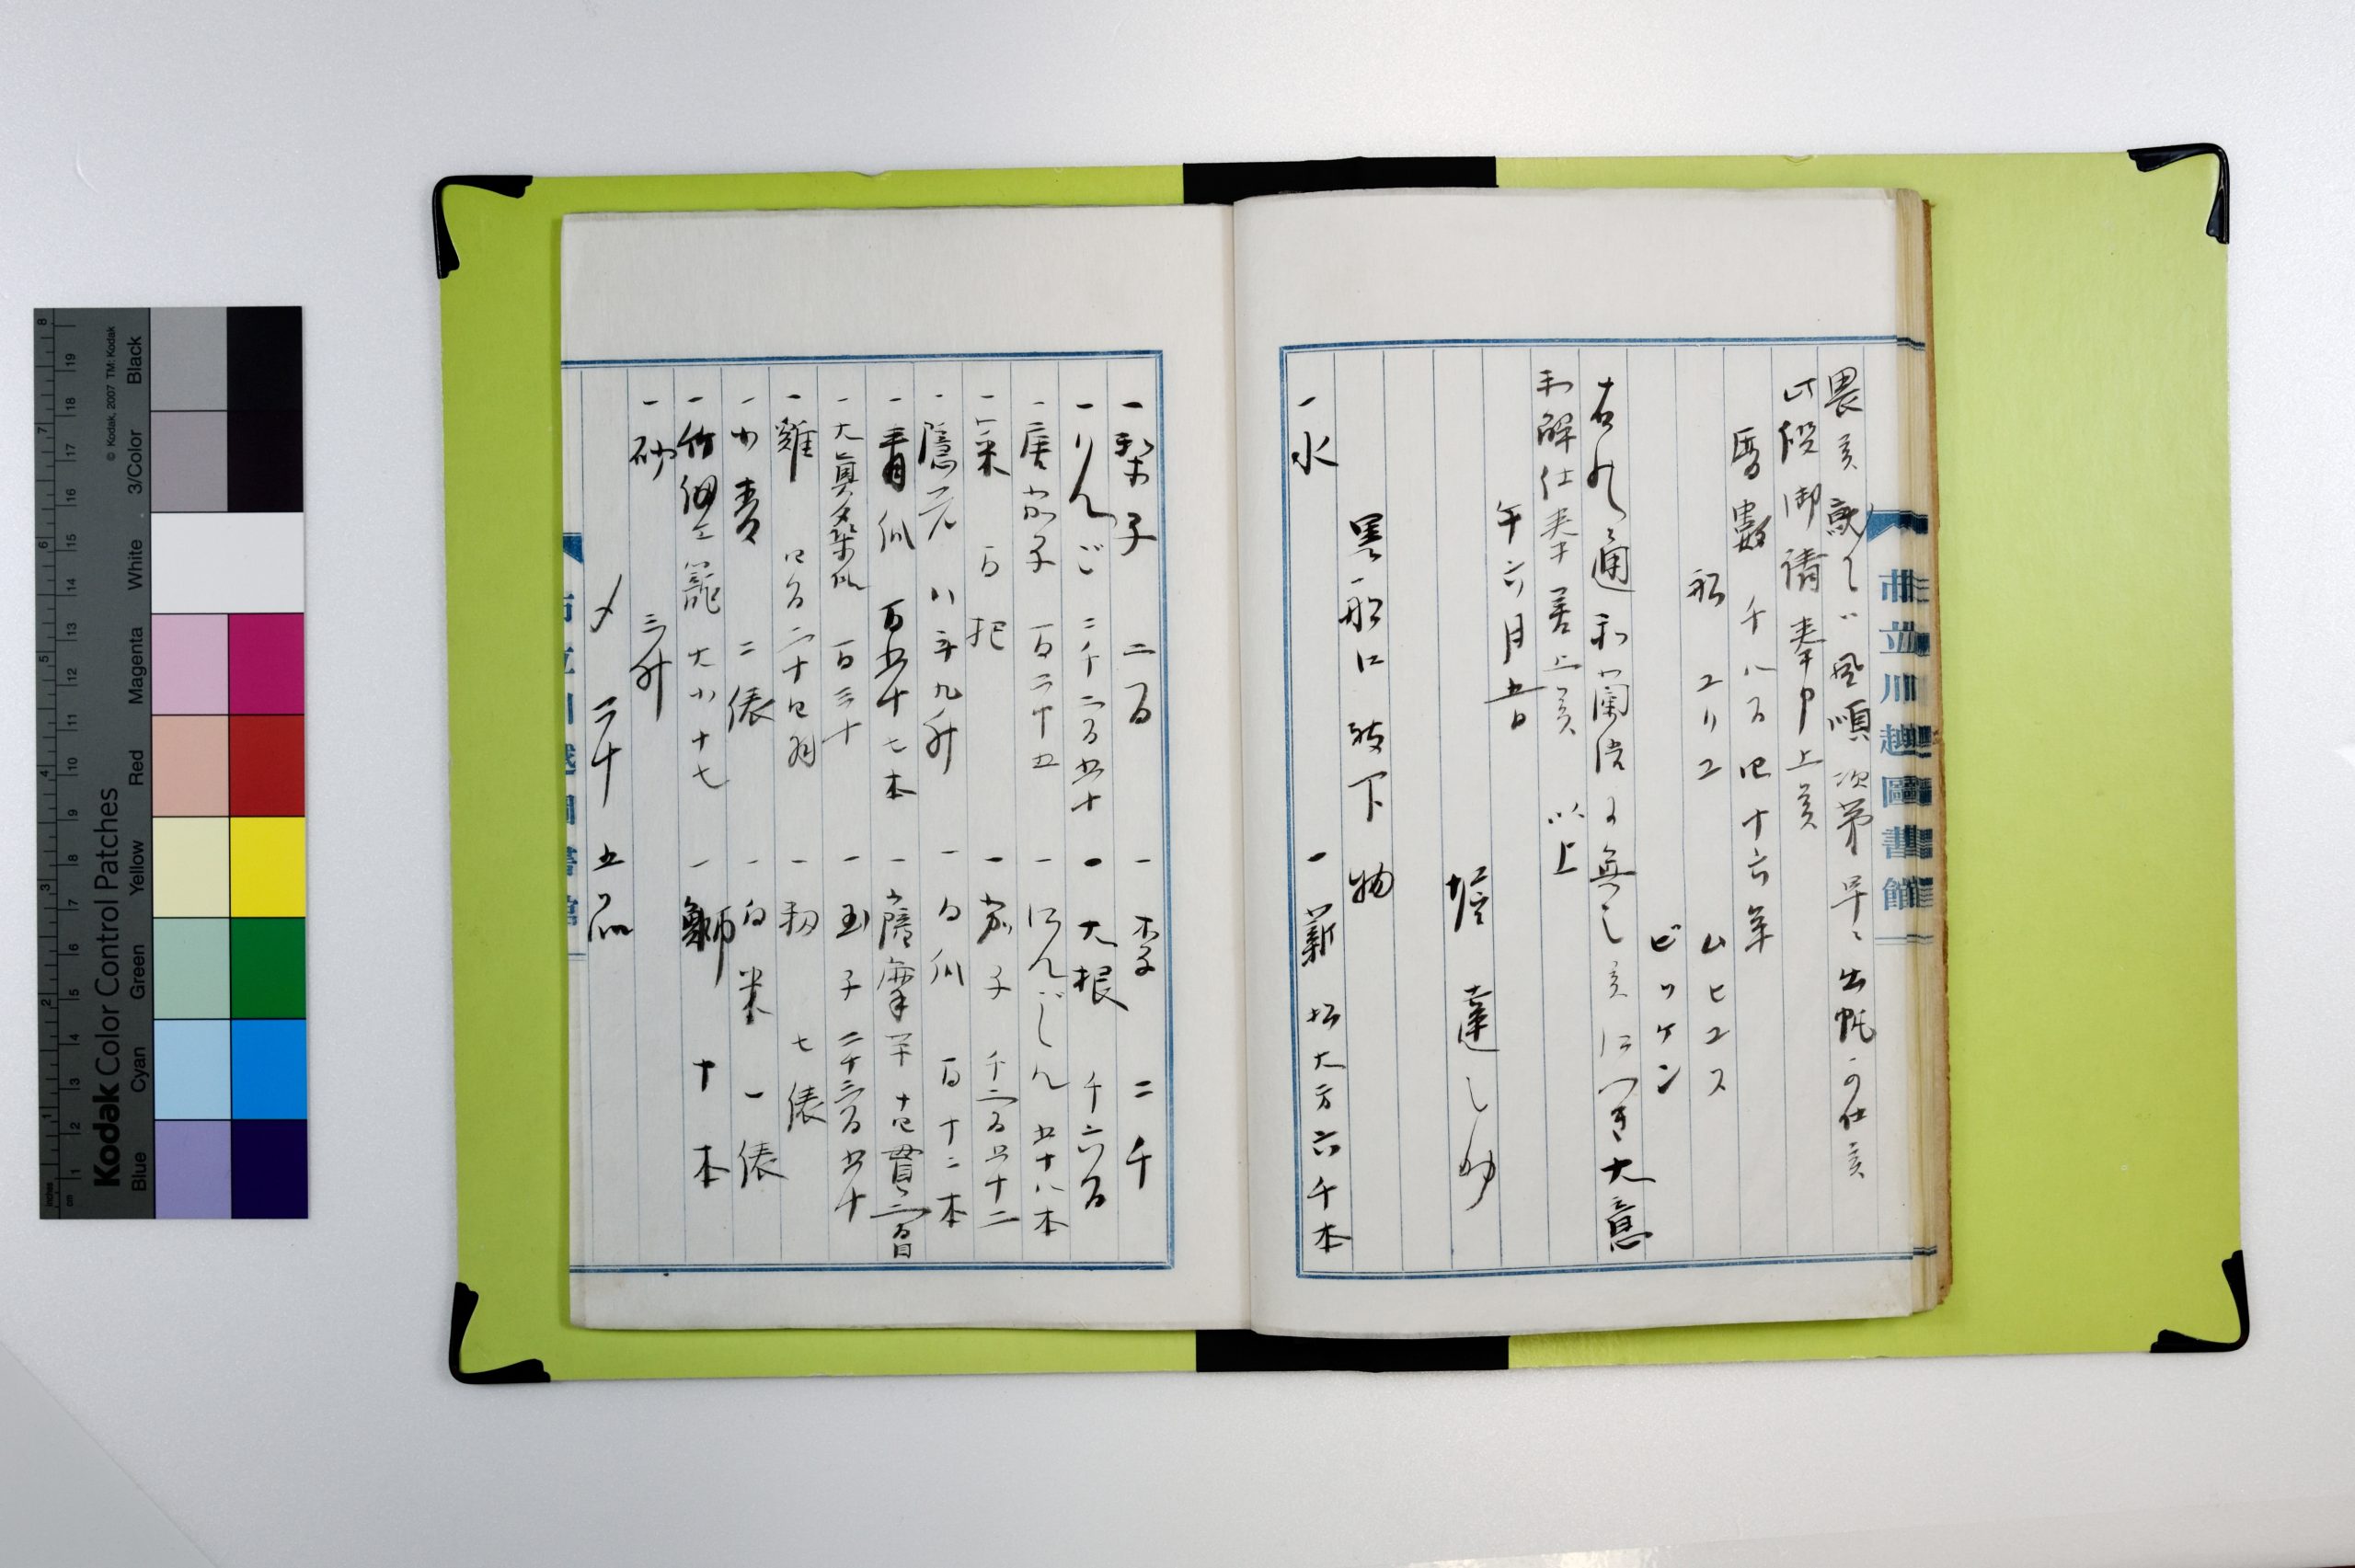 市立川越圖書館
畏矣誠に以風順次第早々出帆可仕候
此段御請奉申上候
暦數千八百四十六年
船 コリコ ムヒコス
ビッケン
右之通和蘭陀文無之候につき大意
和解仕奉差上候 以上
午六月五日
堀達之助
黒船江被下物
一水 一薪 松大万六千本
一梨子 二百 一李 二千
一りんご 二千二百五十 一大根 千六百
一唐茄子 百二十五 一にんじん 五十八本
一菜 百把 一茄子 千二百五十二
一隱元 八斗九升 一白瓜 百十二本
一青瓜 百五十七本 一薩摩芋 十四貫二百目
一大眞桑瓜 百三十 一玉子 二千三百五十
一雞 四百二十四羽 一籾 七俵
一小麦 二俵 一白米 一俵
一竹 籠 大小十七 一鰤 十本
一砂 三升
〆 二十五品
市立川越圖書館
Kodak Color Control Patches
© Kodak, 2007 TM: Kodak
Blue Cyan Green Yellow Red Magenta White 3/Color Black